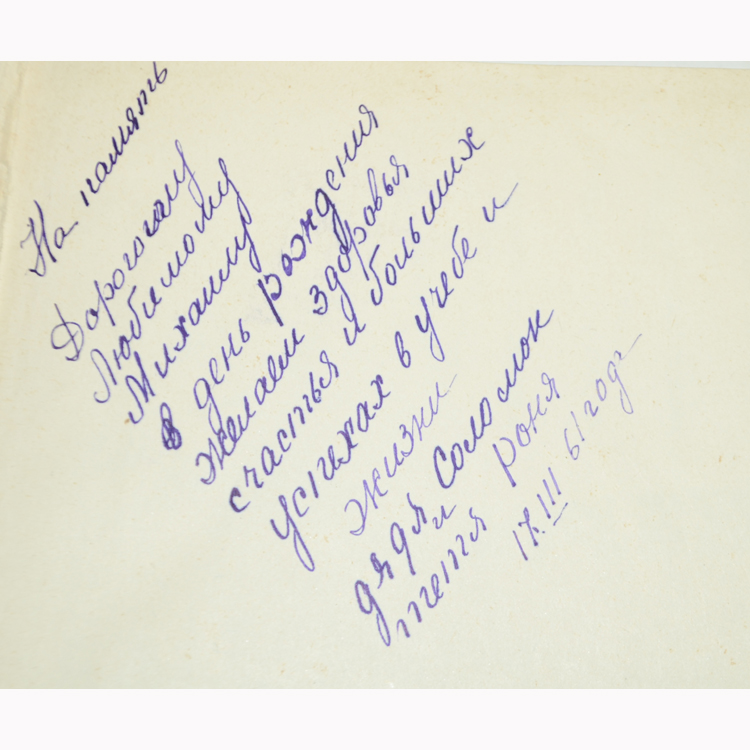 На память
Дорогому
Любимому
Михаилу
в день рождения
желаем здоровья
счастья и больших
успехах в учебе и
жизни
дядя Соломон
и
тетя Роня
17.III 61 год